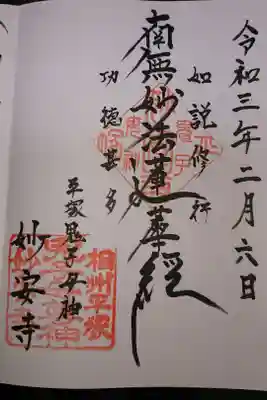 令和三年二月六日
如説修行
南無妙法蓮華経
功徳甚多
平塚鬼子母神
妙安寺
相州平塚